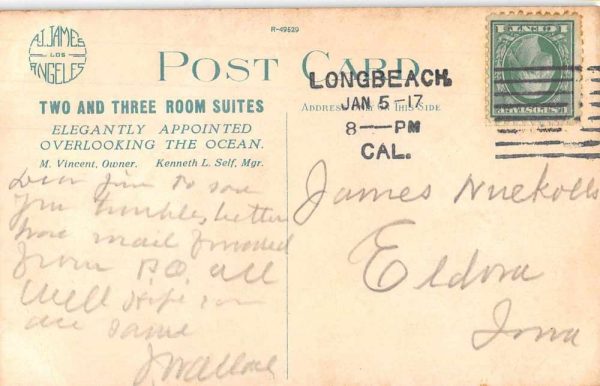 R-49529
A.J. JAMES
LOS
ANGELES
POST CARD
TWO AND THREE ROOM SUITES
ELEGANTLY APPOINTED
OVERLOOKING THE OCEAN.
M. Vincent, Owner. Kenneth L. Self, Mgr.
Address Only on This Side
LONGBEACH,
JAN 5-17
8-PM
CAL.
Dear Jim to save
you trouble, better
have mail forwarded
from P.O. all
Well Hope you
are same
J Wallace
James Nuckolls
Eldora
Iowa